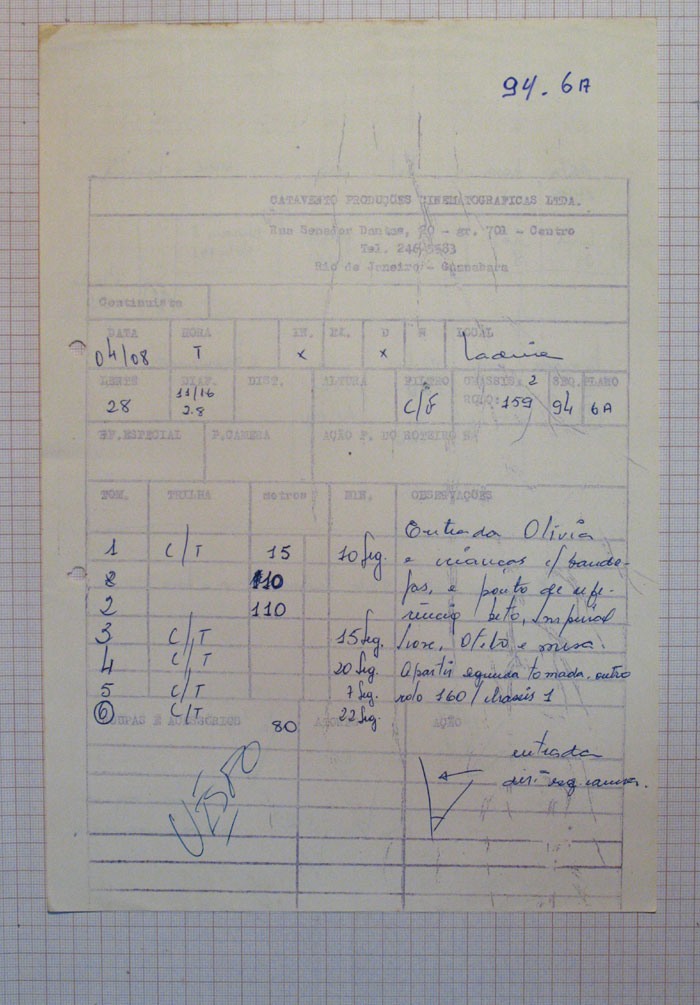 94. 6A
CATAVENTO PRODUÇÕES CINEMATOGRAFICAS LTDA.
Rua Senador Dantas, 20 - gr. 701 - Centro
Tel. 246
Rio de Janeiro - Guanabara
Continuista
DATA HORA IN. EX. D N LOCAL
04/08 T x x
LENTE DIAF. DIST. ALTURA FILTRO CHASSIS: 2 SEQ. PLANO
28 11/16 2.8 C/F ROLO: 159 94 6A
EF.ESPECIAL P.CAMERA AÇÃO P. DO ROTEIRO Nº
TOM. TRILHA metros MIN. OBSERVAÇÕES
Entrada Olivia
1 C/T 15 10 seg. e crianças c/ bande-
2 110 jas, e ponto de refe-
2 110 rência beto,
3 C/T 15 seg. Otelo e musa.
4 C/T 20 seg. Apartir segunda tomada, outro
5 C/T 7 seg. rolo 160 / chassis 1
6 C/T 22 seg.
ROUPAS E ACESSÓRIOS 80 AÇÃO
entrada